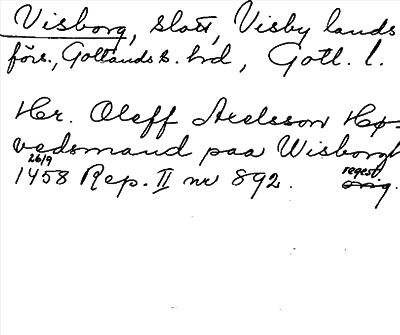 Visborg, slott, Visby lands
förs., Gotlands s. hrd, Gotl. l.
Hr. Oleff Axelsson Hø-
vedsmand paa Wisborgh
26/9
1458 Rep. II nr 892. regest
orig.